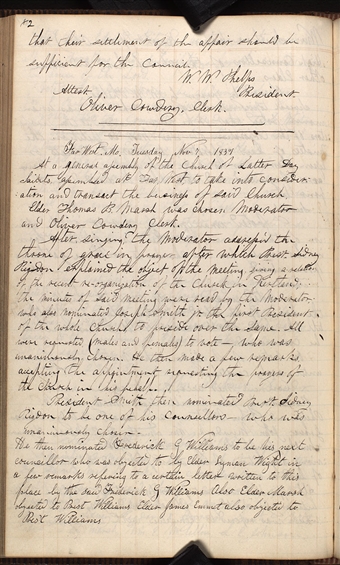 82
that their settlement of the affair should be
sufficient for the Council.
W. W. Phelps
President
Attest
Oliver Cowdery, Clerk.
Far West, Mo, Tuesday Nov. 7, 1837
At a general assembly of the Church of Latter Day
Saints assembled at Far West to take into consider-
ation and transact the business of said Church
Elder Thomas B. Marsh was chosen Moderator
and Oliver Cowdery Clerk.
After singing, the Moderator addressed the
throne of grace in prayer after which Prest. Sidney
Rigdon explained the object of the meeting, giving a relation
of the recent re-organization of the Church in Kirtland.
the minutes of said meeting were read by the Moderator,
who also nominated Joseph Smith jr the first President
of the whole Church to preside over the same. All
were requested (males and females) to vote — who was
unanimously chosen. He then made a few remarks
accepting the appointment requesting the prayers of
the Church in his behalf.
President Smith then nominated Prest Sidney
Rigdon to be one of his Councellors — who was
unanimously chosen.
He then nominated Frederick G Williams to be his next
councellor who was objected to by Elder Lyman Wight in
a few remarks refering to a certain letter written to this
place by the said Frederick G Williams Also Elder Marsh
objected to Prest Williams Elder James Emmet also objected to
Prest Williams